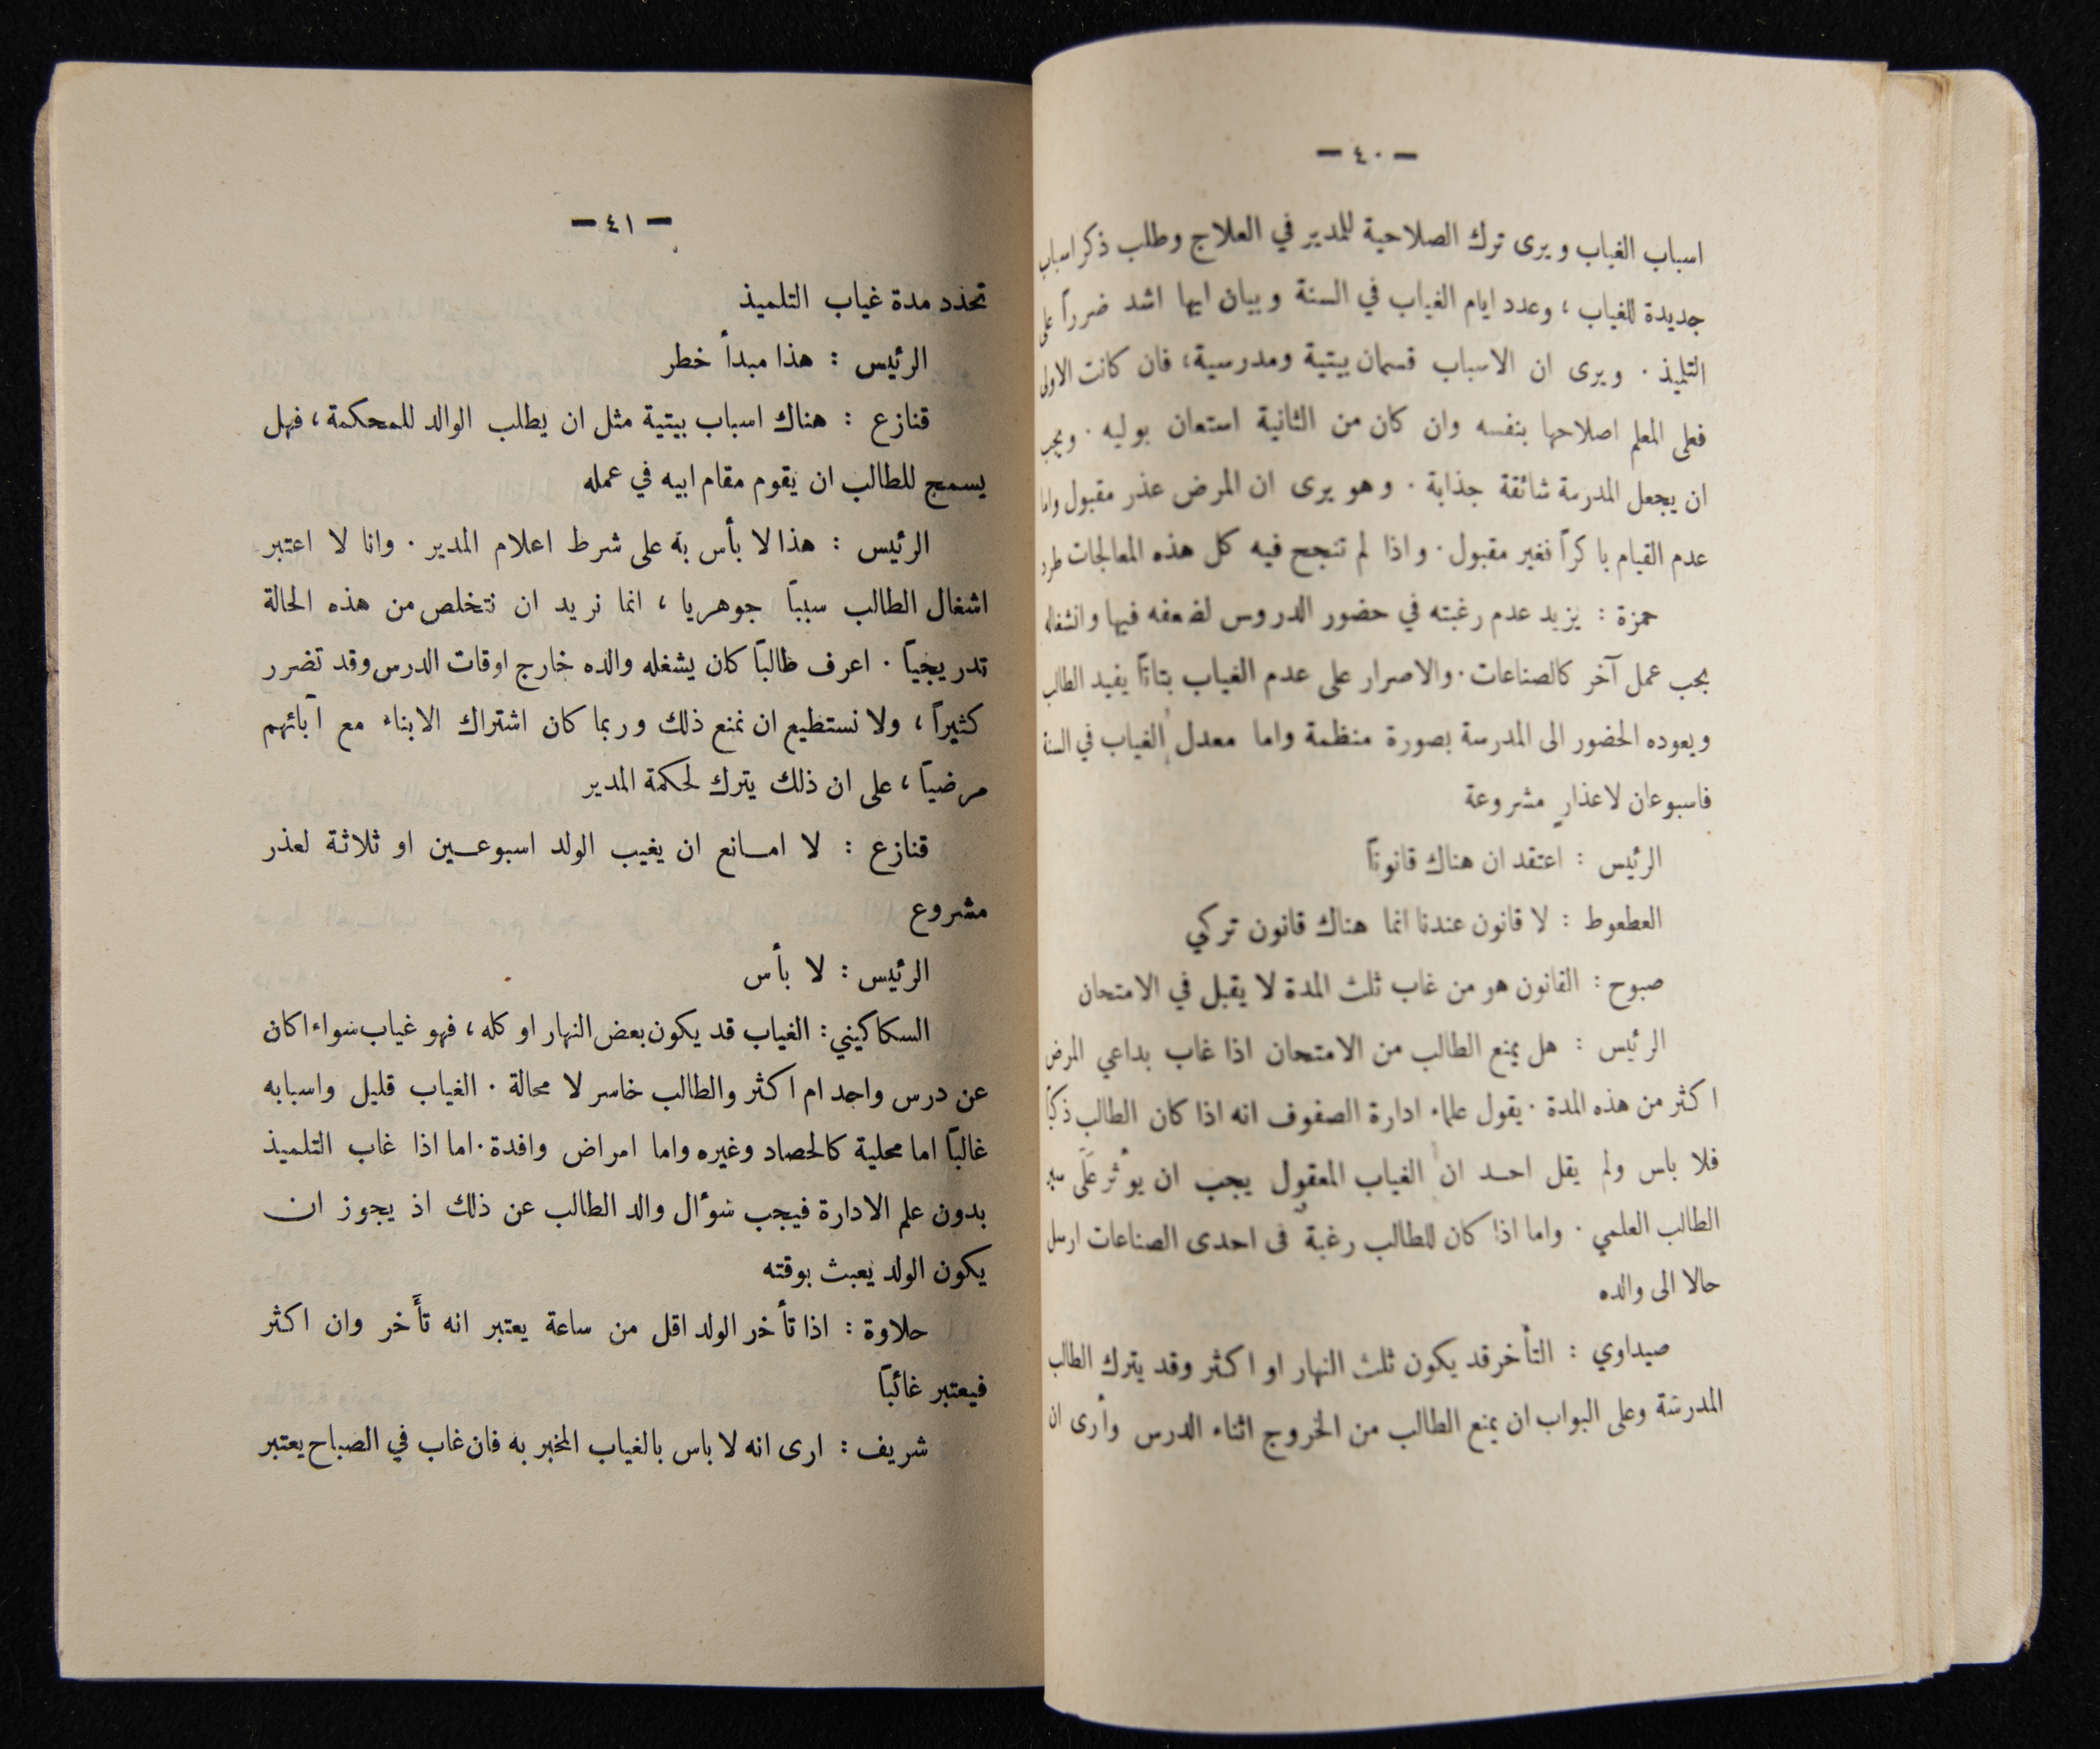 — ٤٠ —
اسباب الغياب ويرى ترك الصلاحية للمدير في العلاج وطلب ذكر اسباب
جديدة للغياب ، وعدد ايام الغياب في السنة وبيان ايها اشد ضرراً على
التلميذ . ويرى ان الاسباب قسمان بيتية ومدرسية، فان كانت الاولى
فعلى المعلم اصلاحها بنفسه وان كان من الثانية استعان بوليه . ويجب
ان يجعل المدرسة شائقة جذابة . وهو يرى ان المرض عذر مقبول واما
عدم القيام باكراً فغير مقبول . واذا لم تنجح فيه كل هذه المعالجات طرد
حمزة : يزيد عدم رغبته في حضور الدروس لضعفه فيها وانشغاله
بحب عمل آخر كالصناعات . والاصرار على عدم الغياب بتاتاً يفيد الطالب
ويعوده الحضور الى المدرسة بصورة منظمة واما معدل الغياب في السنة
فاسبوعان لاعذار مشروعة
الرئيس : اعتقد ان هناك قانوناً
العطعوط : لا قانون عندنا انما هناك قانون تركي
صبوح : القانون هو من غاب ثلث المدة لا يقبل في الامتحان
الرئيس : هل يمنع الطالب من الامتحان اذا غاب بداعي المرض
اكثر من هذه المدة . يقول علماء ادارة الصفوف انه اذا كان الطالب ذكياً
فلا باس ولم يقل احد ان الغياب المعقول يجب ان يؤثر على سير
الطالب العلمي . واما اذا كان للطالب رغبة في احدى الصناعات ارسل
حالا الى والده
صيداوي : التأخر قد يكون ثلث النهار او اكثر وقد يترك الطالب
المدرسة وعلى البواب ان يمنع الطالب من الخروج اثناء الدرس وأرى ان
— ٤١ —
تحدد مدة غياب التلميذ
الرئيس : هذا مبدأ خطر
قنازع : هناك اسباب بيتية مثل ان يطلب الوالد للمحكمة ، فهل
يسمح للطالب ان يقوم مقام ابيه في عمله
الرئيس : هذا لا بأس به على شرط اعلام المدير . وانا لا اعتبر
اشغال الطالب سبباً جوهريا ، انما نريد ان نتخلص من هذه الحالة
تدريجياً . اعرف طالباً كان يشغله والده خارج اوقات الدرس وقد تضرر
كثيراً ، ولا نستطيع ان نمنع ذلك وربما كان اشتراك الابناء مع آبائهم
مرضياً ، على ان ذلك يترك لحكمة المدير
قنازع : لا امانع ان يغيب الولد اسبوعين او ثلاثة لعذر
مشروع
الرئيس : لا بأس
السكاكيني : الغياب قد يكون بعض النهار او كله ، فهو غياب سواء اكان
عن درس واحد ام اكثر والطالب خاسر لا محالة . الغياب قليل واسبابه
غالباً اما محلية كالحصاد وغيره واما امراض وافدة . اما اذا غاب التلميذ
بدون علم الادارة فيجب سؤال والد الطالب عن ذلك اذ يجوز ان
يكون الولد يعبث بوقته
حلاوة : اذا تأخر الولد اقل من ساعة يعتبر انه تأخر وان اكثر
فيعتبر غائباً
شريف : ارى انه لا باس بالغياب المخبر به فان غاب في الصباح يعتبر